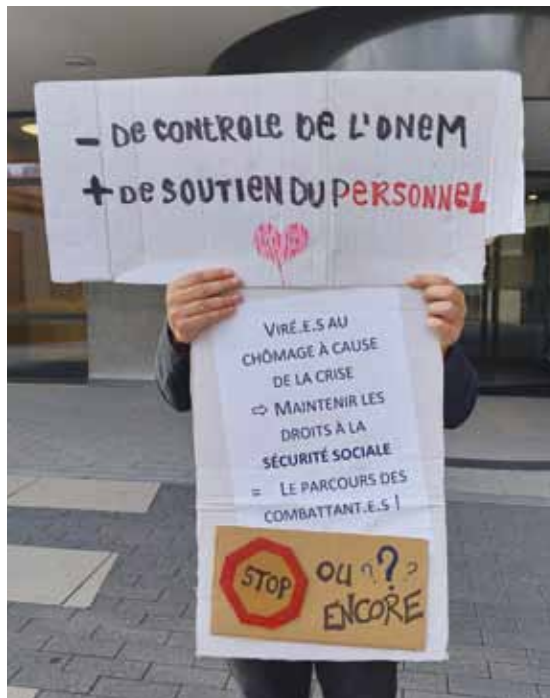 - DE CONTROLE DE L'ONEM
+ DE SOUTIEN DU PERSONNEL
VIRÉ.E.S AU
CHÔMAGE À CAUSE
DE LA CRISE
⇨ MAINTENIR LES
DROITS À LA
SÉCURITÉ SOCIALE
= LE PARCOURS DES
COMBATTANT.E.S !
STOP OU ? ? ?
ENCORE